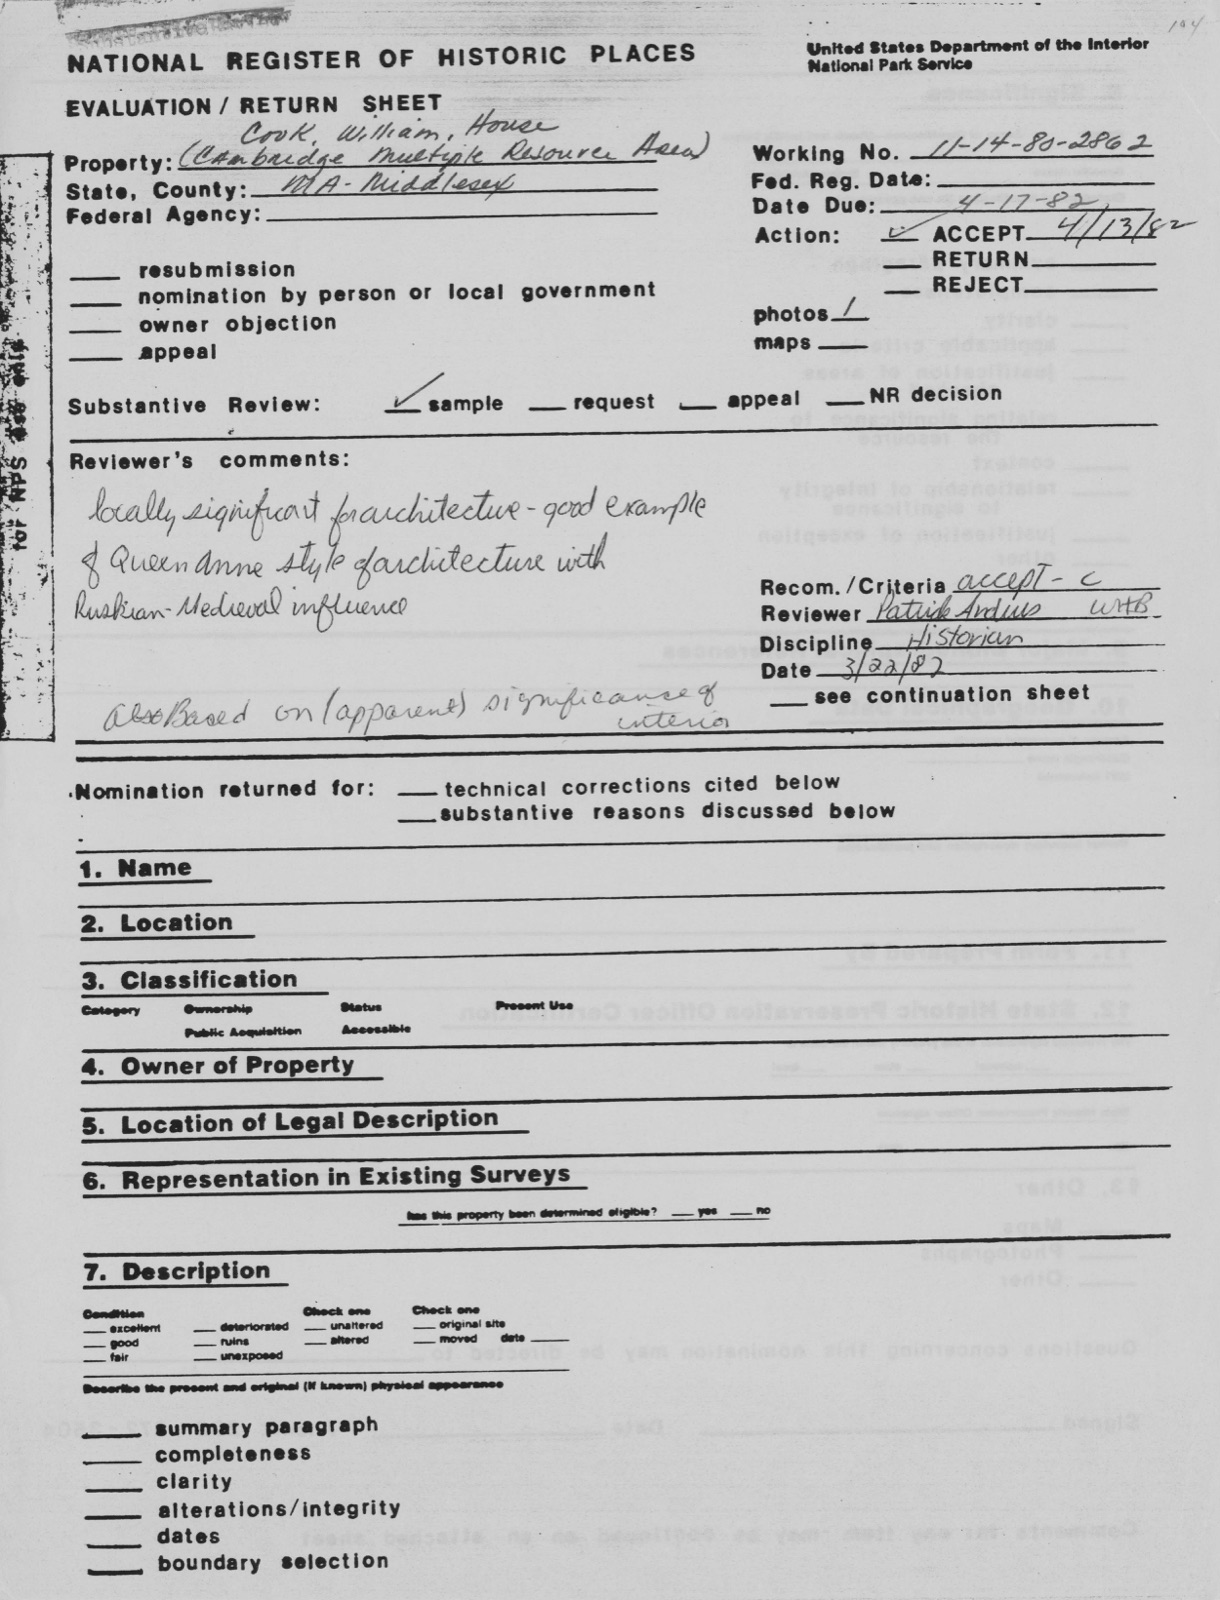 194
Substantive Review
NATIONAL REGISTER OF HISTORIC PLACES
United States Department of the Interior
National Park Service
EVALUATION / RETURN SHEET
Cook, William, House
Property: (Cambridge Multiple Resource Area)
State, County: MA - Middlesex
Federal Agency:
Working No. 11-14-80-2862
Fed. Reg. Date:
Date Due: 4-17-82
Action: ✓ ACCEPT 4/13/82
RETURN
REJECT
resubmission
nomination by person or local government
owner objection
appeal
photos 1
maps
for NPS use only
Substantive Review: ✓ sample request appeal NR decision
Reviewer's comments:
locally significant for architecture - good example
of Queen Anne style of architecture with
Ruskian-Medieval influence
also Based on (apparent) significance of
interior
Recom./Criteria accept - C
Reviewer Patrick Andrus WHB
Discipline Historian
Date 3/22/82
see continuation sheet
Nomination returned for: technical corrections cited below
substantive reasons discussed below
1. Name
2. Location
3. Classification
Category Ownership Status Present Use
Public Acquisition Accessible
4. Owner of Property
5. Location of Legal Description
6. Representation in Existing Surveys
has this property been determined eligible? yes no
7. Description
Condition Check one Check one
excellent deteriorated unaltered original site
good ruins altered moved date
fair unexposed
Describe the present and original (if known) physical appearance
summary paragraph
completeness
clarity
alterations/integrity
dates
boundary selection